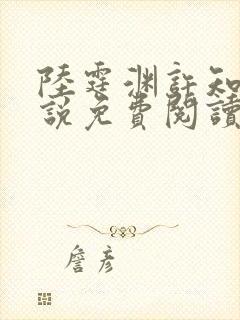 陸霆渊許知
説免費閱讀
詹彥